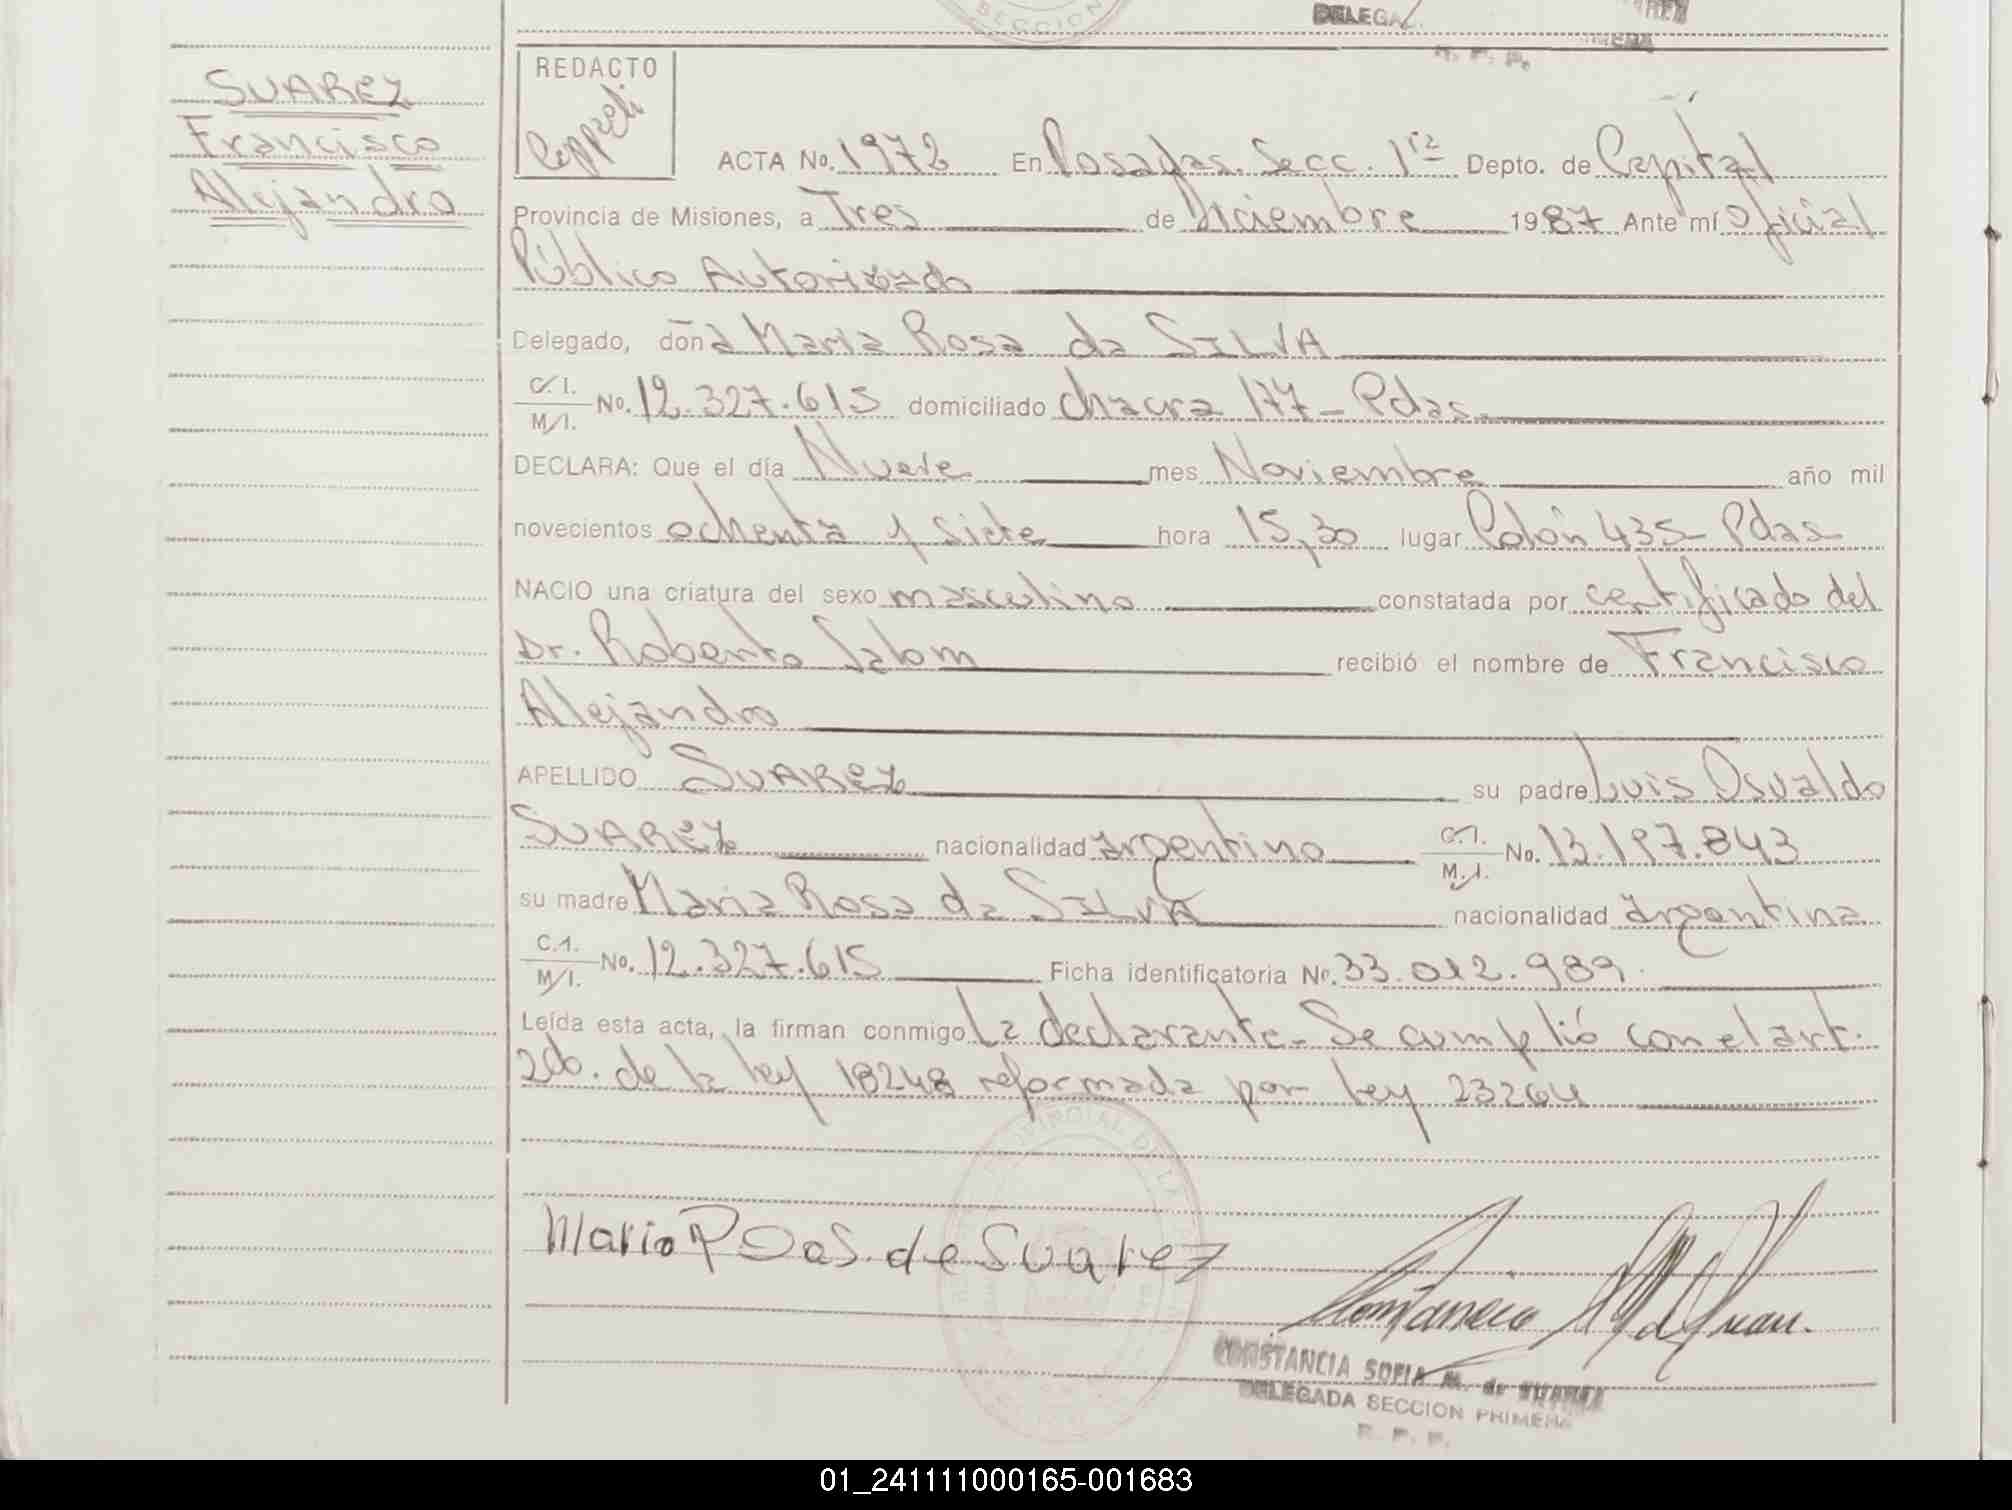 SECCION
DELEGA
R. P. P.
SUAREZ
Francisco
Alejandro
REDACTO
ACTA No. 1972 En Posadas. Secc. 1ra Depto. de Capital
Provincia de Misiones, a Tres de Diciembre 1987 Ante mí Oficial
Público Autorizado
Delegado, doña Maria Rosa da SILVA
C/I. M/I. No. 12.327.615 domiciliado chacra 177 - Pdas.
DECLARA: Que el día Nueve mes Noviembre año mil
novecientos ochenta y siete hora 15,30 lugar Colón 435 - Pdas
NACIO una criatura del sexo masculino constatada por certificado del
Dr. Roberto Salom recibió el nombre de Francisco
Alejandro
APELLIDO SUAREZ su padre Luis Osvaldo
SUAREZ nacionalidad argentino C.I. M.I. No. 13.197.843
su madre Maria Rosa da SILVA nacionalidad argentina
C.I. M/I. No. 12.327.615 Ficha identificatoria No. 33.012.989.
Leída esta acta, la firman conmigo La declarante. Se cumplió con el art.
2do. de la ley 18248 reformada por ley 23264
Maria R DaS. de Suarez
CONSTANCIA SOFIA M. de
DELEGADA SECCION PRIMERA
R. P. P.
01_241111000165-001683